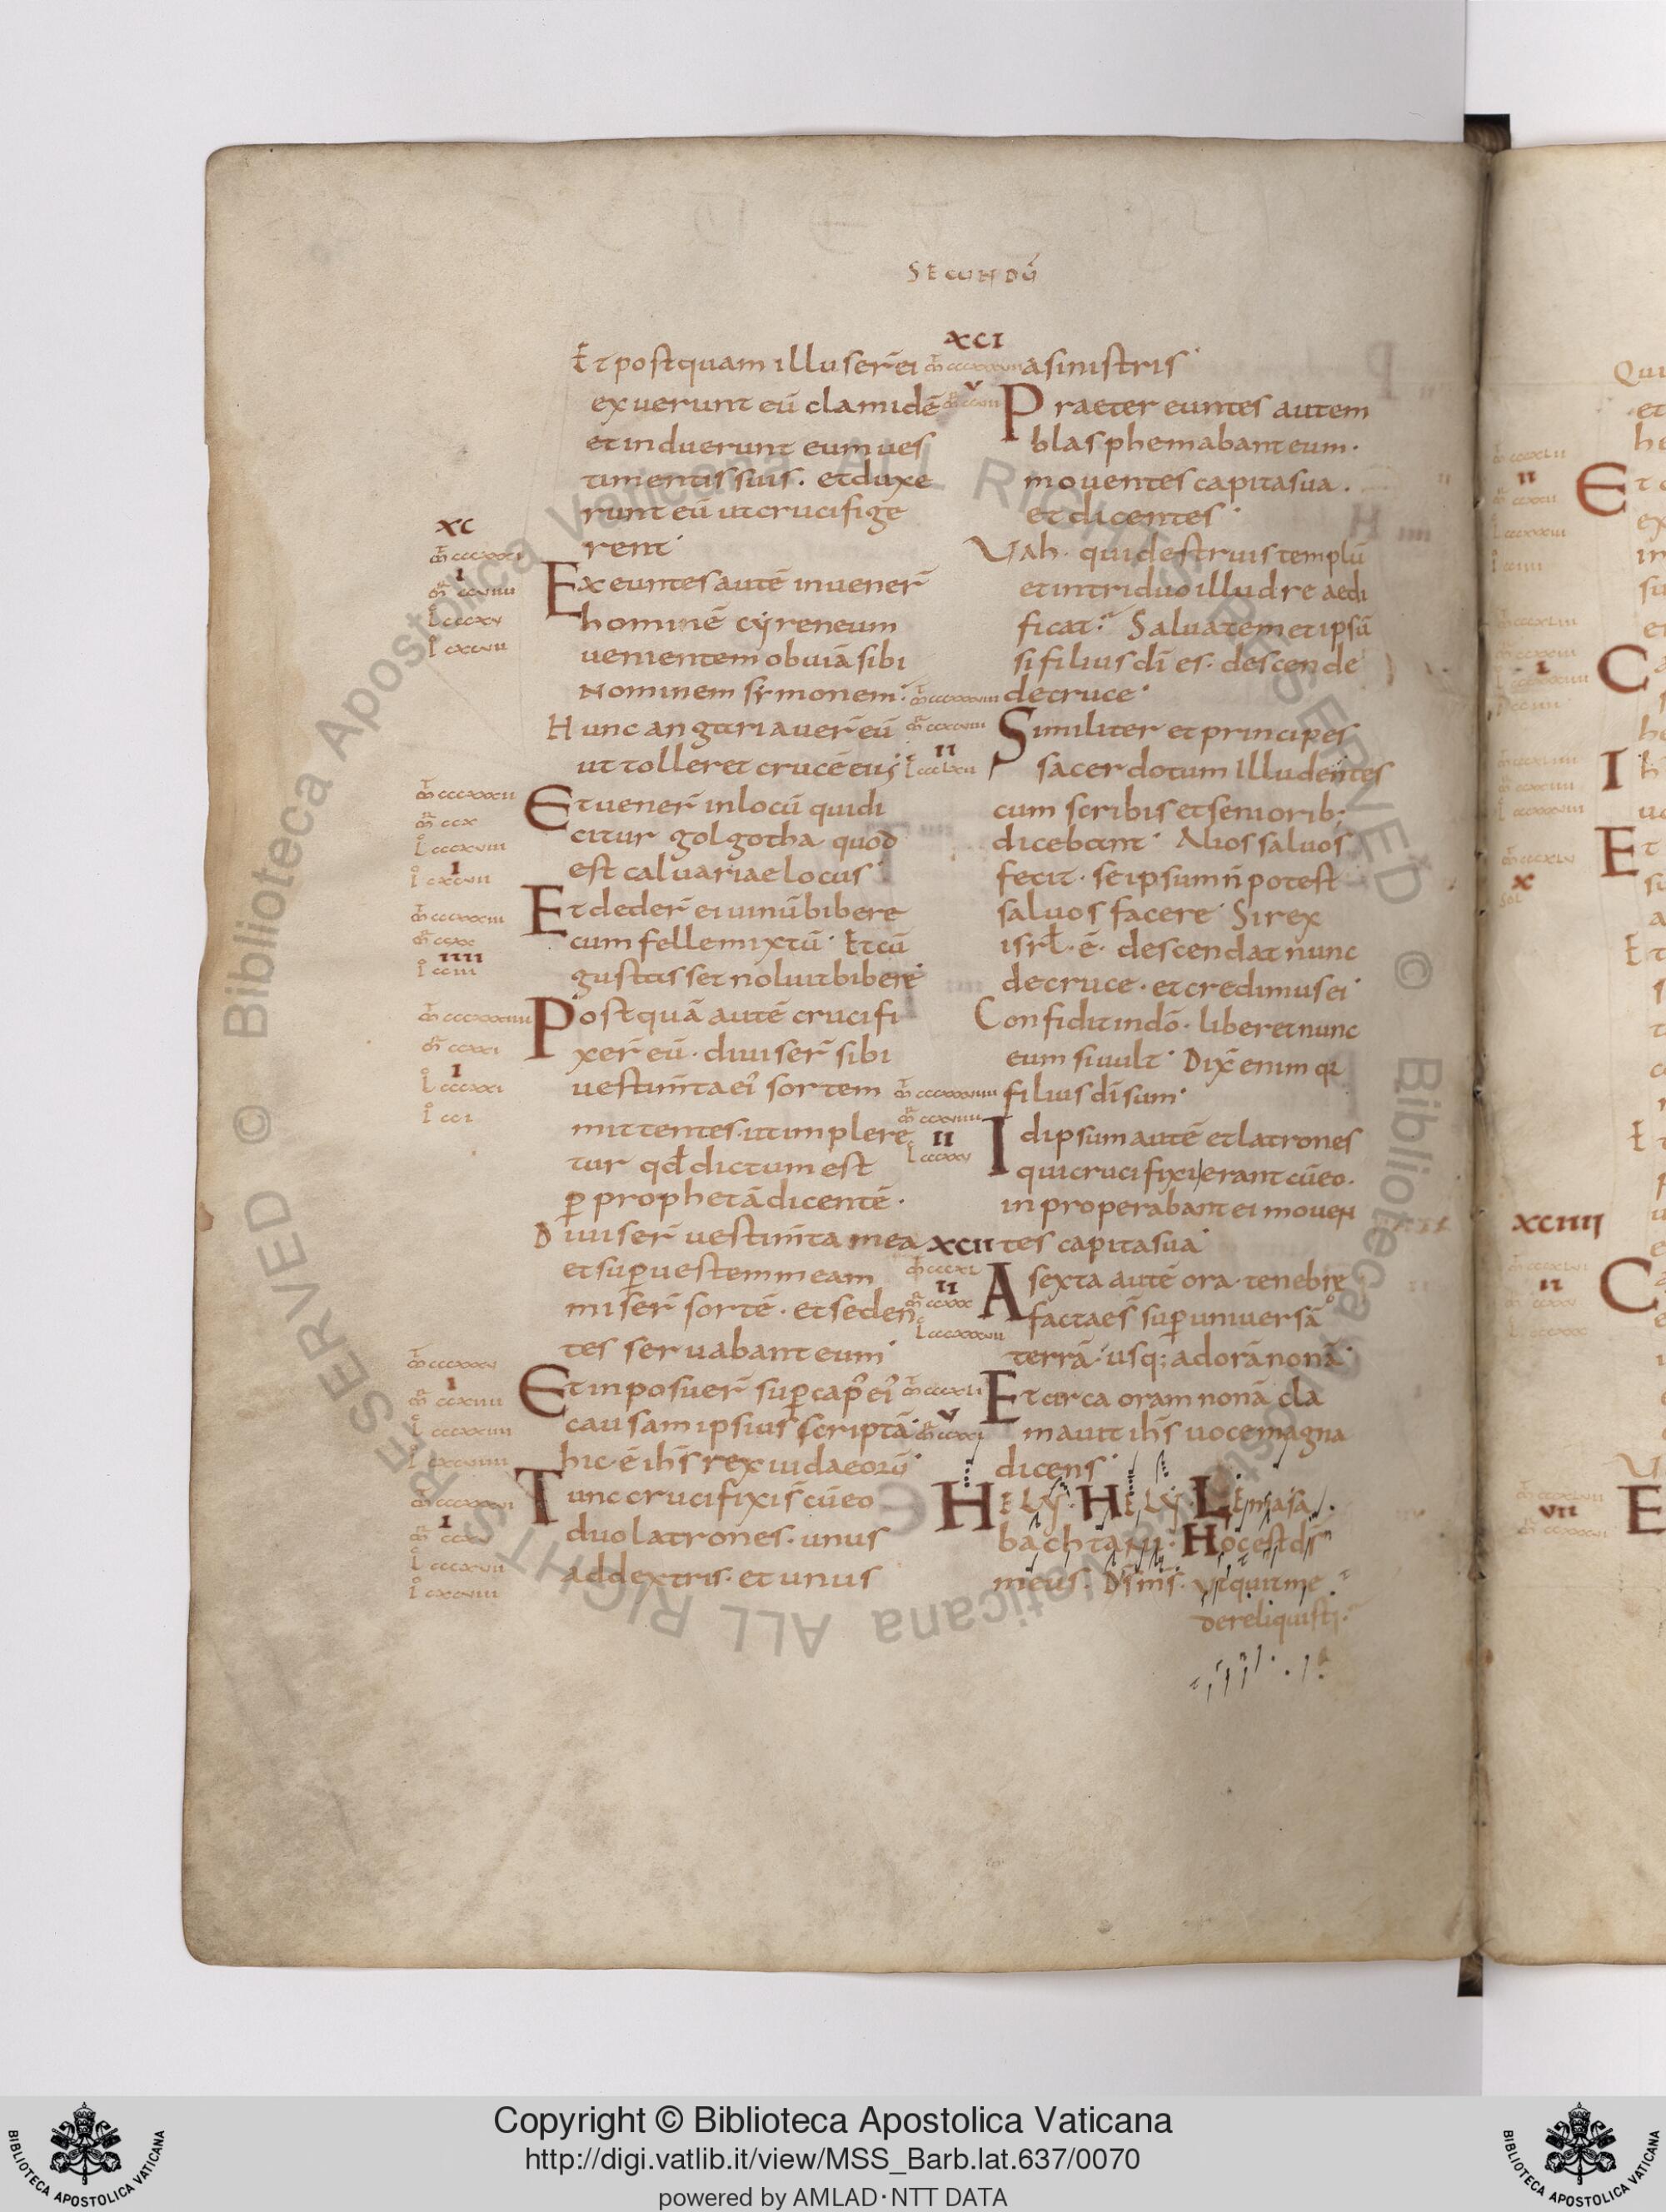 SECUNDŪ
Et postquam illuser̄ ei
exuerunt eū clamidē
et induerunt eum ves
timentis suis · et duxe
runt eū ut crucifige
rent ·
XC
Exeuntes autē invener̄
hominē cyreneum
venientem obviā sibi
Nominem symonem ·
Hunc angariaver̄ eū
ut tolleret crucē eius
Et vener̄ in locū qui di
citur golgotha quod
est calvariae locus
Et deder̄ ei vinū bibere
cum felle mixtū · Et cū
gustasset noluit bibere
Postquā autē crucifi
xer̄ eū · diviser̄ sibi
vestim̄ta ei' sortem
mittentes · ut implere
tur qd̄ dictum est
p̄ prophetā dicentē ·
Diviser̄ vestim̄ta mea
et sup̄ vestem meam
miser̄ sortē · et seden
tes servabant eum
Et inposuer̄ sup̄ cap' ei'
causam ipsius scriptā ·
hic · ē ihs̄ rex iudaeorū
Tunc crucifixi s̄ cū eo
duo latrones · unus
ad dextris · et unus
XCI
a sinistris ·
Praeter euntes autem
blasphemabant eum ·
moventes capita sua ·
et dicentes ·
Vah · qui destruis templū
et in triduo illud re aedi
ficat · Salva temet ipsū
si filius dī es · descende
de cruce ·
Similiter et principes
sacerdotum illudentes
cum scribis et seniorib;
dicebant · Alios salvos
fecit · se ipsum n̄ potest
salvos facere · Si rex
isrl̄ · ē · descendat nunc
de cruce · et credimus ei ·
Confidit in dō · liberet nunc
eum si vult · Dix̄ enim q̄
filius dī sum ·
Id ipsum autē et latrones
qui crucifixi erant cū eo ·
inproperabant ei moven
XCII
tes capita sua ·
A sexta autē ora · tenebrę
facta es̄ sup̄ universā
terrā · usq; ad orā nonā ·
Et circa oram nonā cla
mavit ihs̄ voce magna
dicens ·
HELY · HELY · Lema sa
bachtani · Hoc est ds̄
meus · Ds̄ ms̄ · ut quit me
dereliquisti ·
XCIIII
Copyright © Biblioteca Apostolica Vaticana
http://digi.vatlib.it/view/MSS_Barb.lat.637/0070
powered by AMLAD·NTT DATA
BIBLIOTECA APOSTOLICA VATICANA
BIBLIOTECA APOSTOLICA VATICANA
© Biblioteca Apostolica Vaticana ALL RIGHTS RESERVED
© Biblioteca Apostolica Vaticana ALL RIGHTS RESERVED